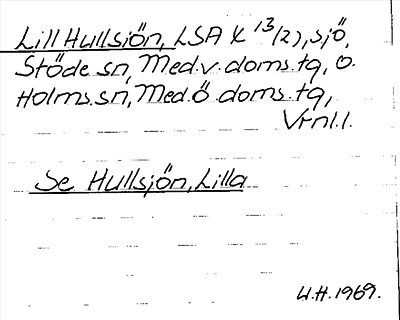 Lill Hullsjön, LSA K 13/12), sjö,
Stöde sn, Med.v. doms.tg, o.
Holms.sn, Med.ö doms.tg,
Vrnl.l.
Se Hullsjön, Lilla
U.H. 1969.